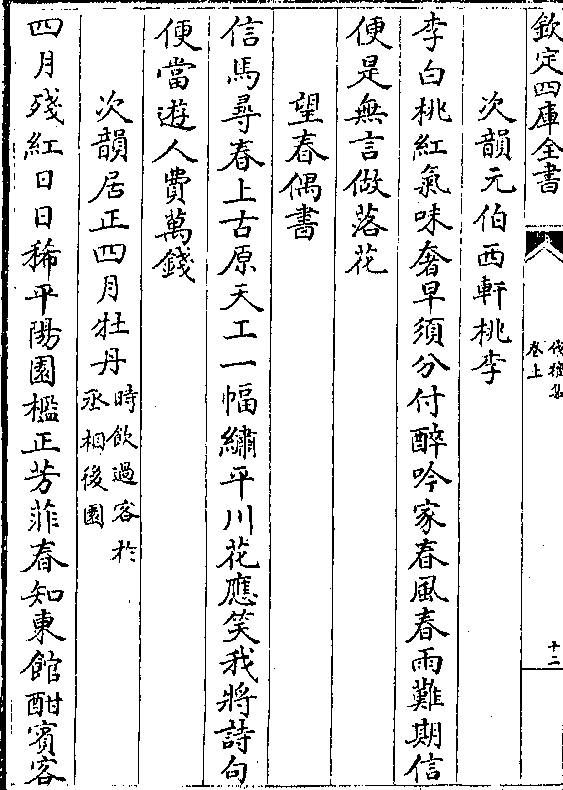 欽定四庫全書
伐檀集
卷上
十二
次韻元伯西軒桃李
李白桃紅氣味奢早須分付醉吟家春風春雨難期信
便是無言做落花
望春偶書
信馬尋春上古原天工一幅繡平川花應笑我將詩句
便當遊人費萬錢
次韻居正四月牡丹
時飲過客於
丞相後園
四月殘紅日日稀平陽園檻正芳菲春知東館酣賓客